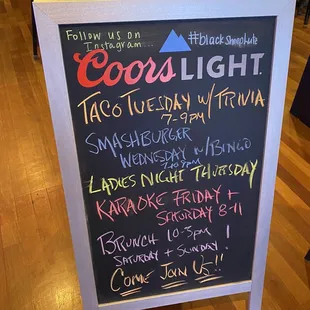 Follow us on
Instagram...
#blacksheephole
Coors LIGHT.
TACO TUESDAY w/ TRIVIA
7-9PM
SMASHBURGER
WEDNESDAY w/ BINGO
LADIES NIGHT THURSDAY
KARAOKE FRIDAY +
SATURDAY 8-11
BRUNCH 10-3pm
SATURDAY + SUNDAY !
COME JOIN US!!